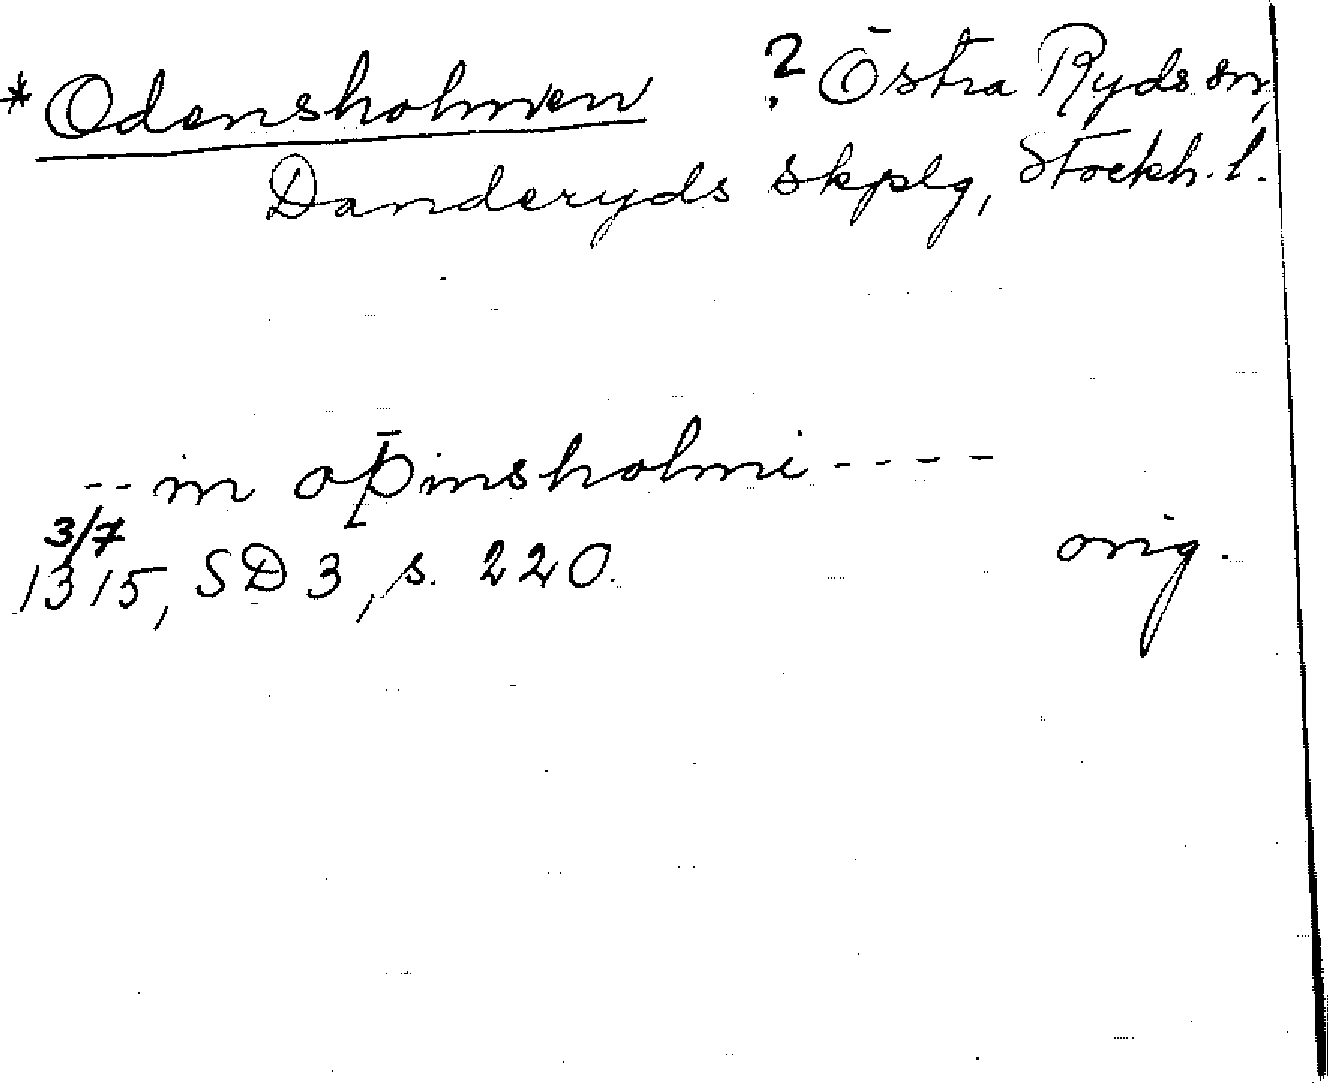 * Odensholmen ? Östra Ryds sn,
Danderyds skplg, Stockh. l.
-- in oþinsholmi ----
3/7
1315, SD 3, s. 220. orig.